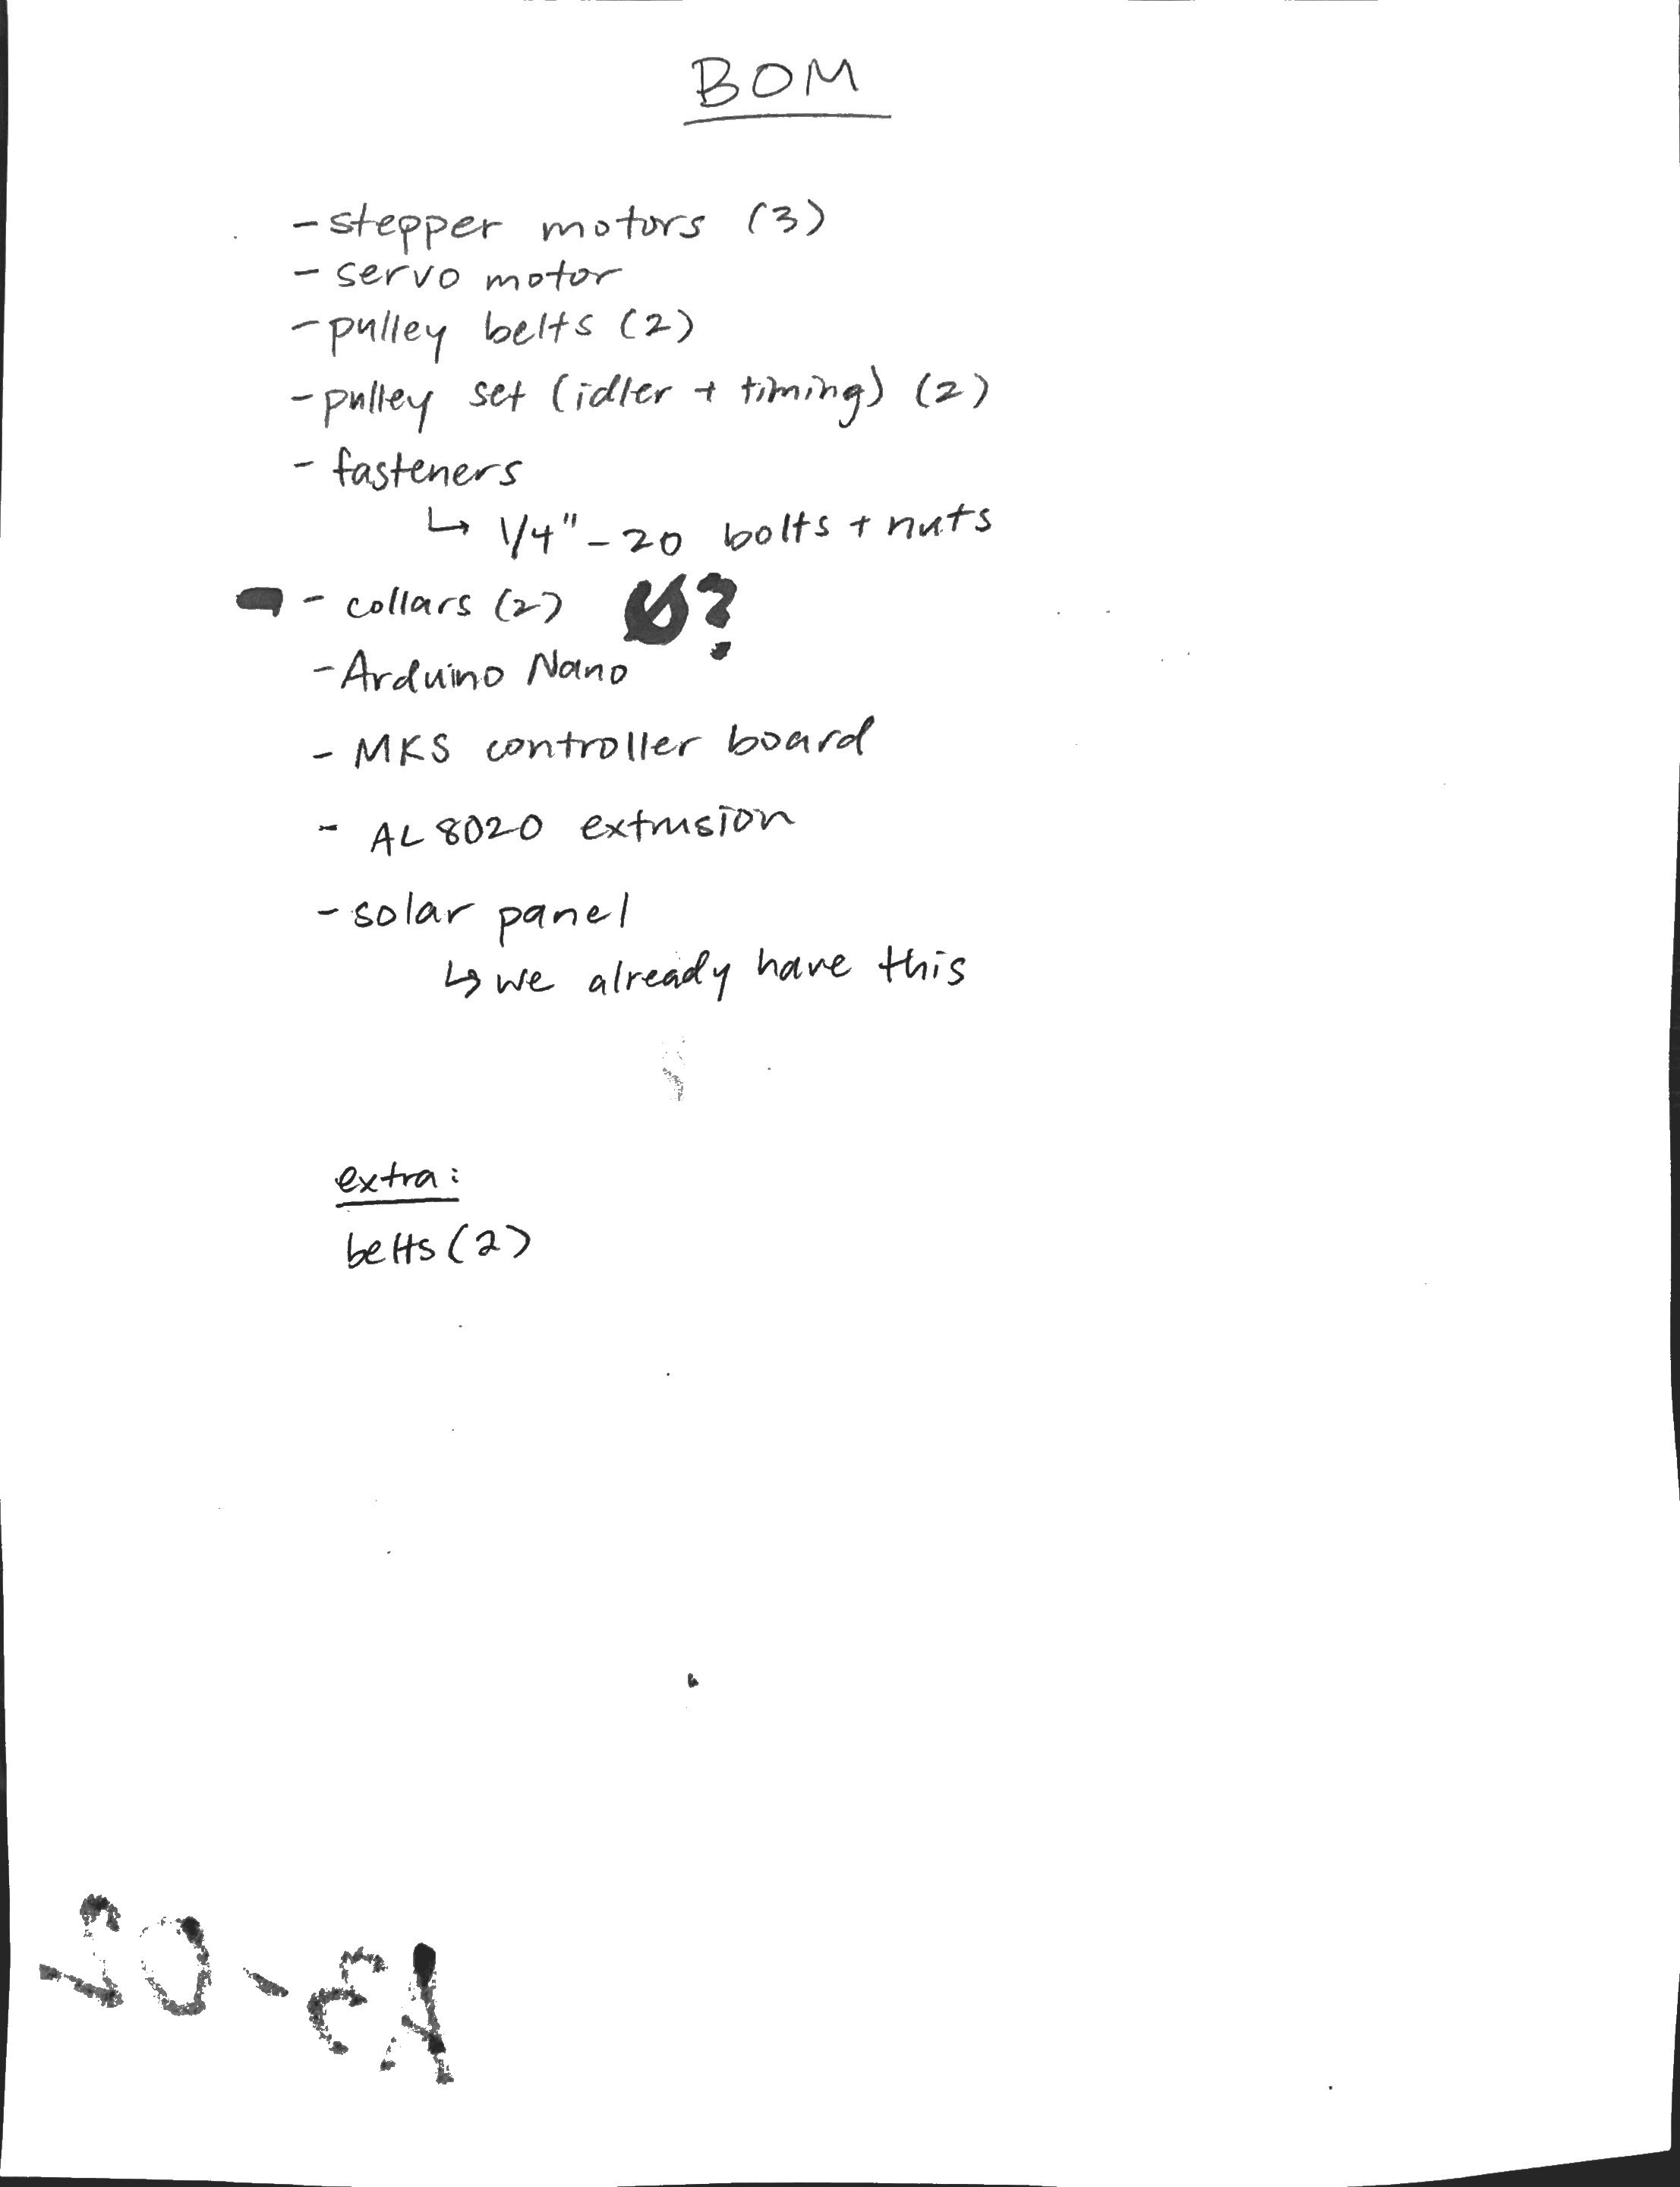 BOM
- stepper motors (3)
- servo motor
- pulley belts (2)
- pulley set (idler + timing) (2)
- fasteners
↳ 1/4"-20 bolts + nuts
- collars (2) ?
- Arduino Nano
- MKS controller board
- AL 8020 extrusion
- solar panel
↳ we already have this
extra:
belts (2)